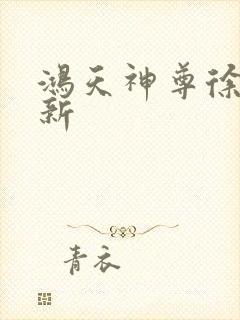 鸿天神尊徐
新
青衣